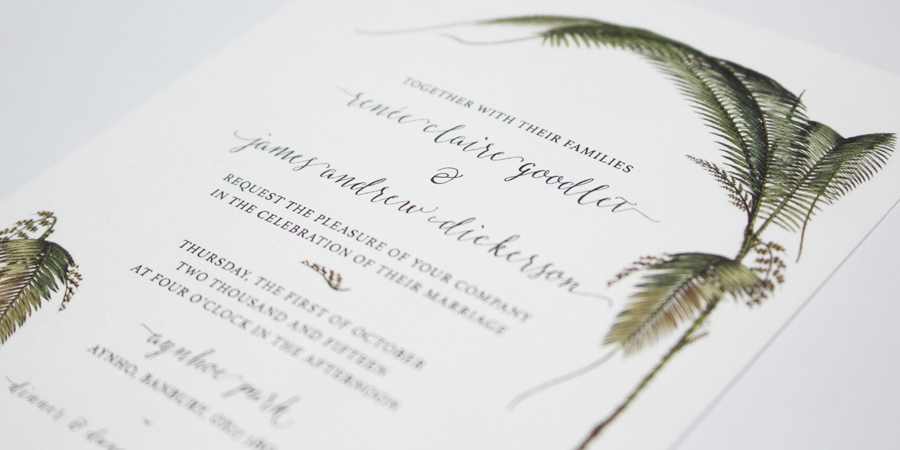 TOGETHER WITH THEIR FAMILIES
renée claire goodlet
&
james andrew dickerson
REQUEST THE PLEASURE OF YOUR COMPANY
IN THE CELEBRATION OF THEIR MARRIAGE
THURSDAY, THE FIRST OF OCTOBER
TWO THOUSAND AND FIFTEEN
AT FOUR O'CLOCK IN THE AFTERNOON
aynhoe park
AYNHO, BANBURY,
dinner &